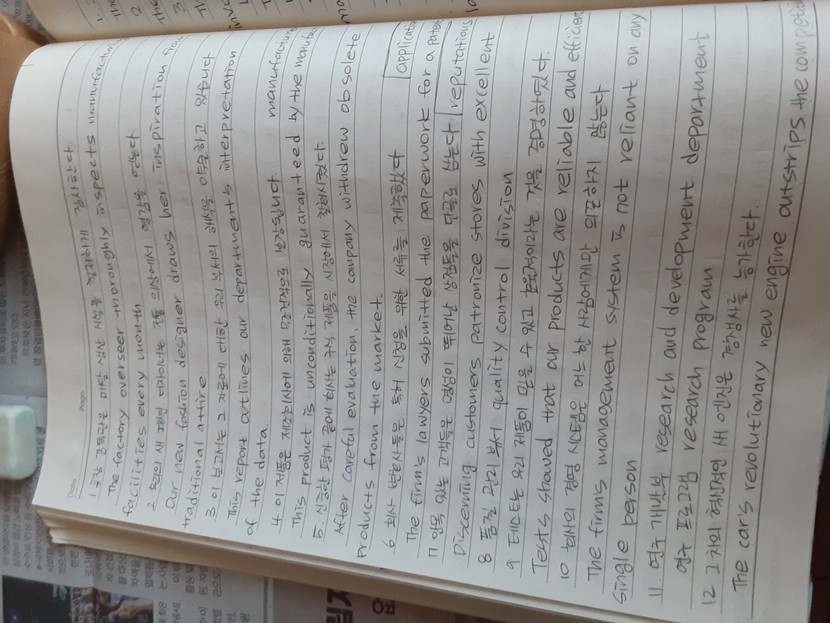 Date
Page
1 공장 감독관은 매달 생산 시설을 철저하게 검사한다
The factory overseer thoroughly inspects manufactur
facilities every month
2 우리의 새 패션 디자이너는 전통 의상에서 영감을 얻는다
Our new fashion designer draws her inspiration from
traditional attire
3 이 보고서는 그 자료에 대한 우리 부서의 해석을 약술하고 있습니다
This report outlines our department's interpretation
of the data.
4 이 제품은 제조회사에 의해 무조건적으로 보장됩니다 manufacturing
This product is unconditionally guaranteed by the manufac
5. 신중한 평가 끝에 회사는 구식 제품을 시장에서 철회시켰다
After careful evaluation, the company withdrew obsolete
products from the market.
6 회사 변호사들은 특허 신청을 위한 서류를 제출했다 applicatio
The firm's lawyers submitted the paperwork for a paten
7 안목 있는 고객들은 명성이 뛰어난 상점들을 단골로 삼는다 reputations
Discerning customers patronize stores with excellent
8 품질 관리 부서 quality control division
9 테스트는 우리 제품이 믿을 수 있고 효율적이라는 것을 증명하였다.
Tests showed that our products are reliable and efficien
10 회사의 경영 시스템은 어느 한 사람에게만 의존하지 않는다
The firm's management system is not reliant on any
single person
11 연구 개발부 research and development department
연구 프로그램 research program
12 그 차의 혁신적인 새 엔진은 경쟁사를 능가한다.
The car's revolutionary new engine outstrips the competi